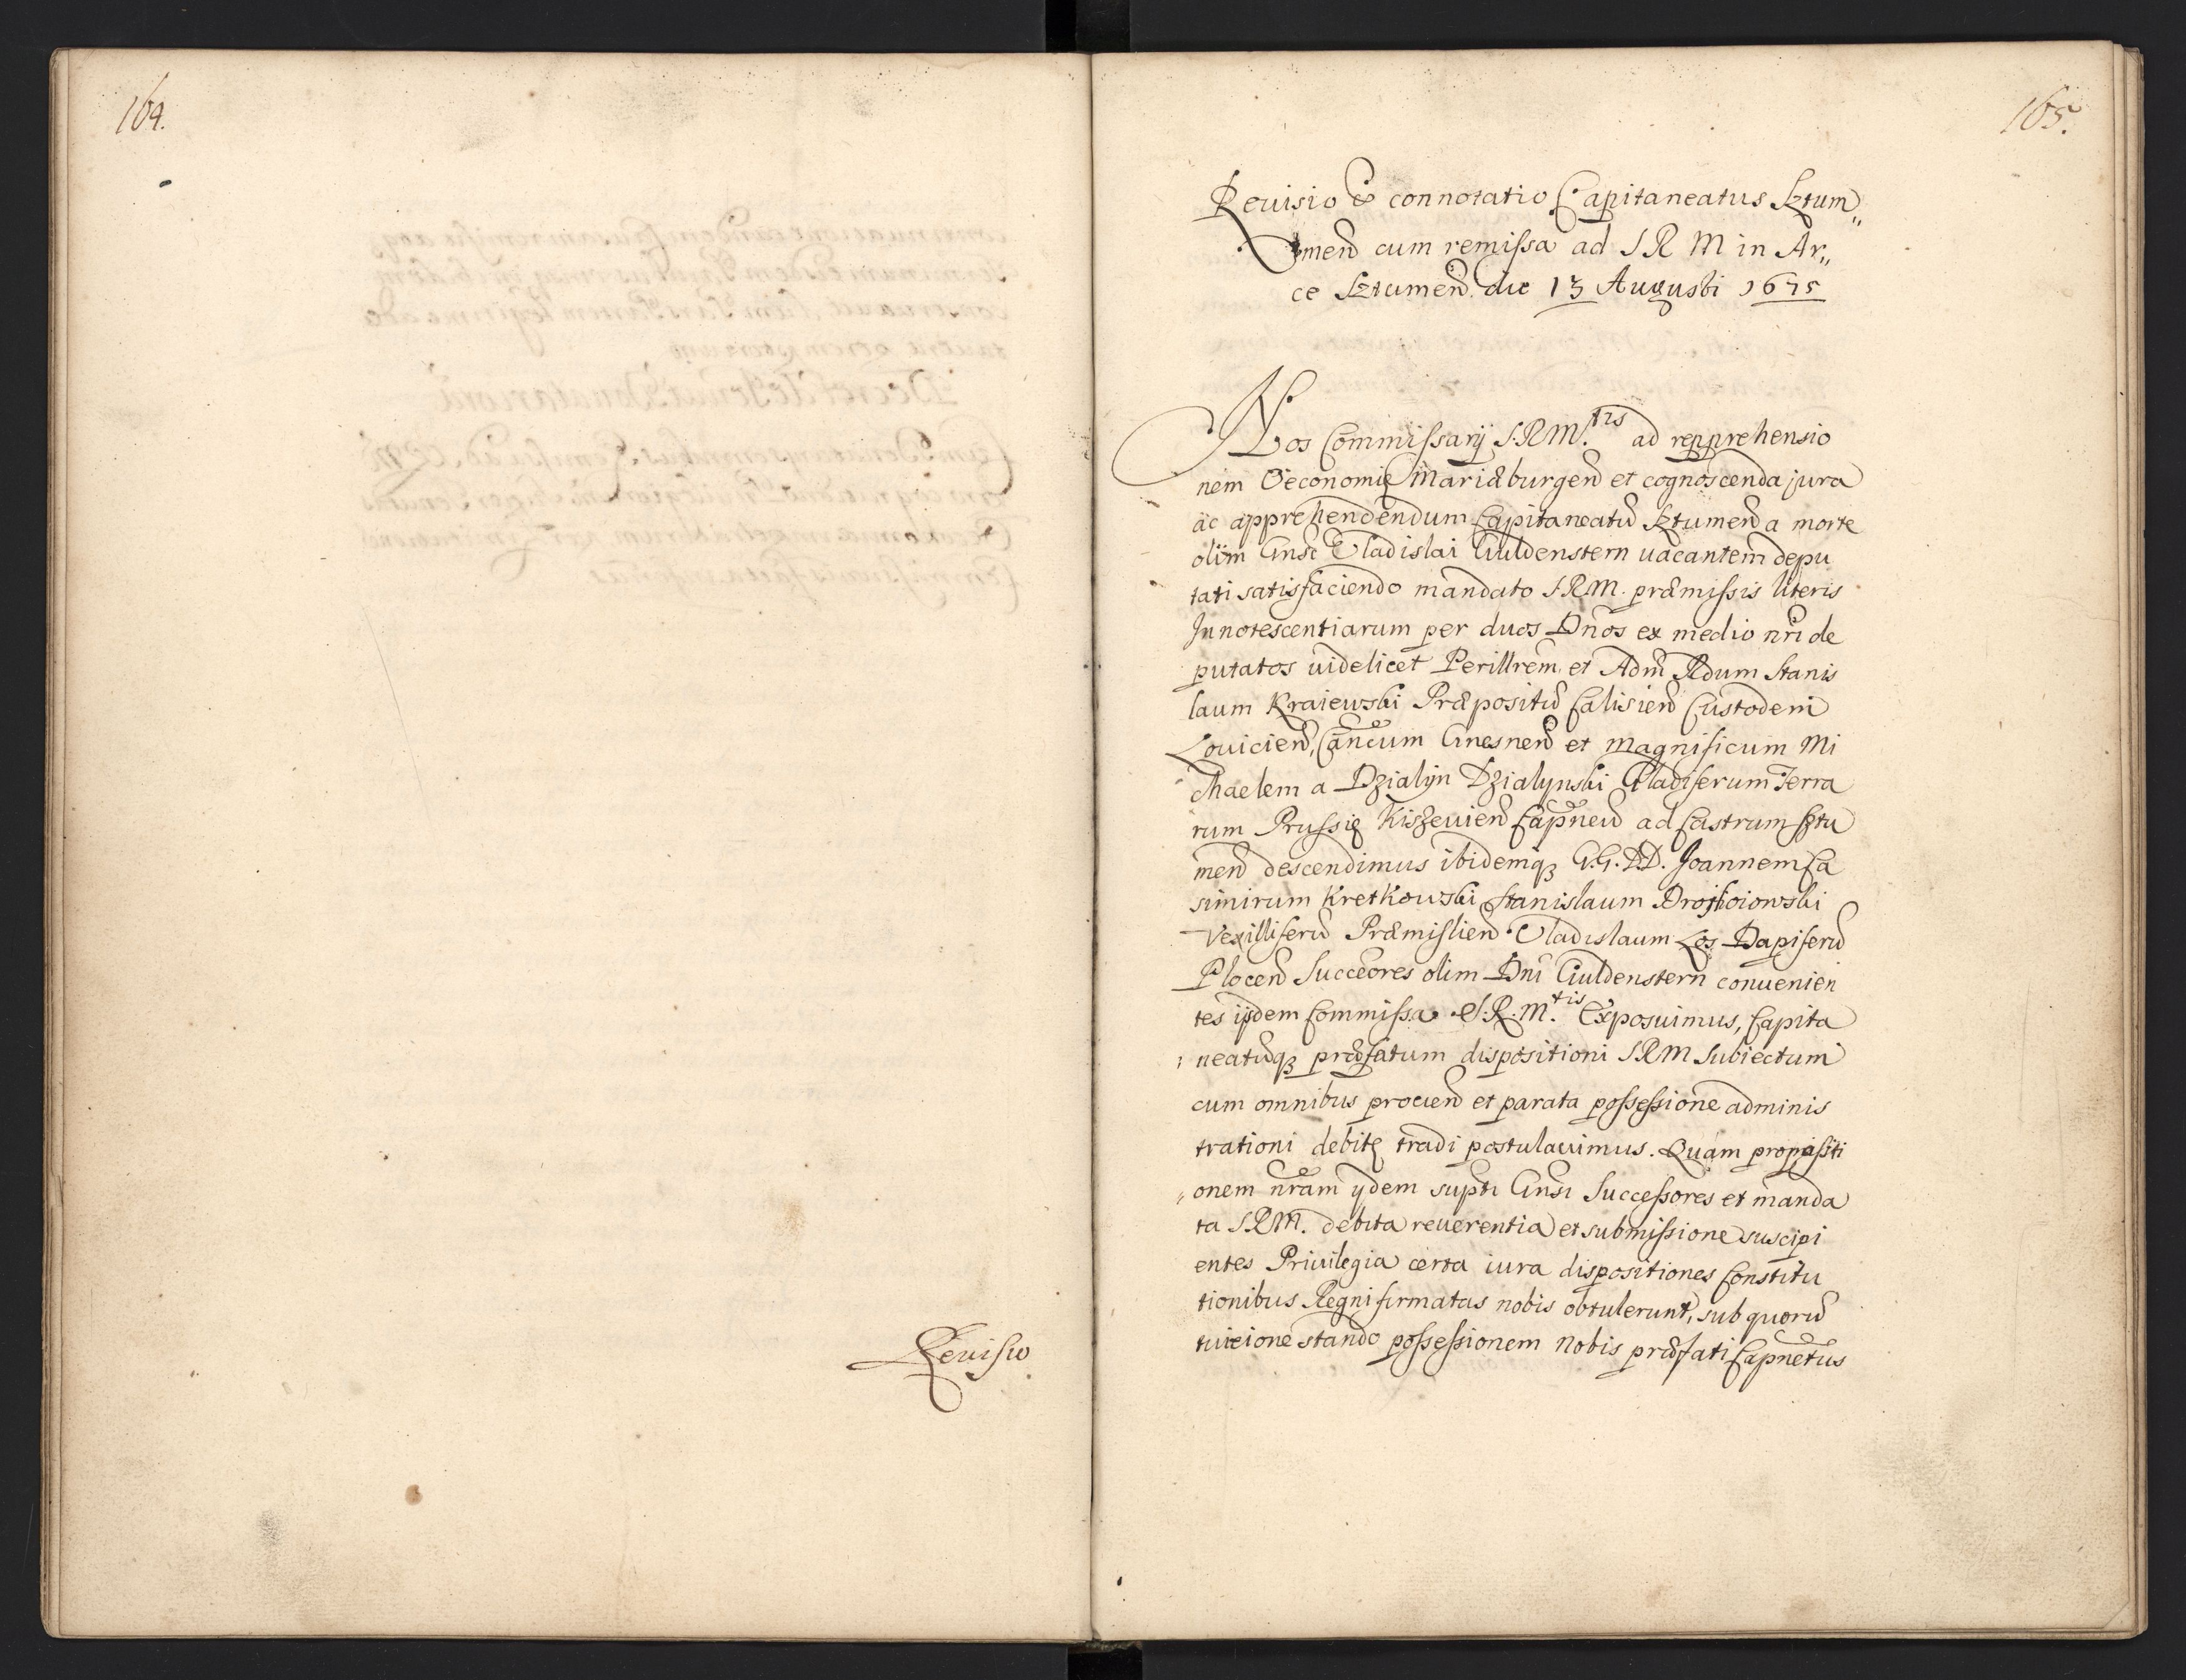 164.
Revisio
165.
Reuisio & connotatio Capitaneatus Sztum„
men̄ cum remissa ad S R M in Ar„
ce Sztumen̄ die 13 Augusti 1675
Nos Commissarij S.R.M.tis ad repprehensio
nem Oeconomię Mariæburgen̄ et cognoscenda jura
ac apprehendendum Capitaneatū Sztumen̄ a morte
olim Gnsi Vladislai Guldenstern uacantem depu
tati satisfaciendo mandato S.R.M. præmissis literis
Innotescentiarum per duos Dn̄os ex medio nr̄i de
putatos uidelicet Perillrem et Adm̄ Rdum Stanis
laum Kraiewski Præpositū Calisien̄ Custodem
Louicien̄, Cancum Gnesnen̄ et Magnificum Mi
chaelem a Dzialÿn Dzialynski Gladiferum Terra
rum Prussię Kiszeuien̄ Capneū ad Castrum Sztu
men̄ descendimus ibidemqʒ G.G.D.D. Joannem Ca
simirum Kretkowski Stanislaum Drohoiowski
Vexilliferū Præmislien̄ Vladislaum Los Dapiferū
Plocen̄ Succeores olim Dn̄i Guldenstern conuenien
tes ijsdem Commissa S.R.M.tis Exposuimus, Capita
neatūqʒ præfatum dispositioni S R M Subiectum
cum omnibus prouen̄ et parata possessione adminis
trationi debitę tradi postulauimus. Quam propositi
onem nr̄am ijdem supti Gnsi Successores et manda
ta S.R.M. debita reuerentia et submissione suscipi
entes Priuilegia certa iura dispositiones Constitu
tionibus Regni firmatas nobis obtulerunt, sub quorū
tuicione stando possessionem nobis præfati Capnetus